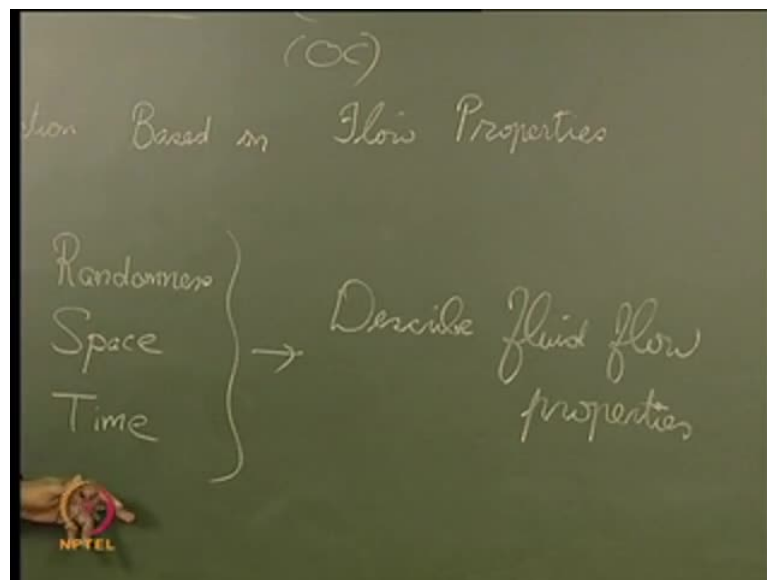 (OC)
tion Based on Flow Properties
Randomness
Space
Time
→ Describe fluid flow
properties
NPTEL